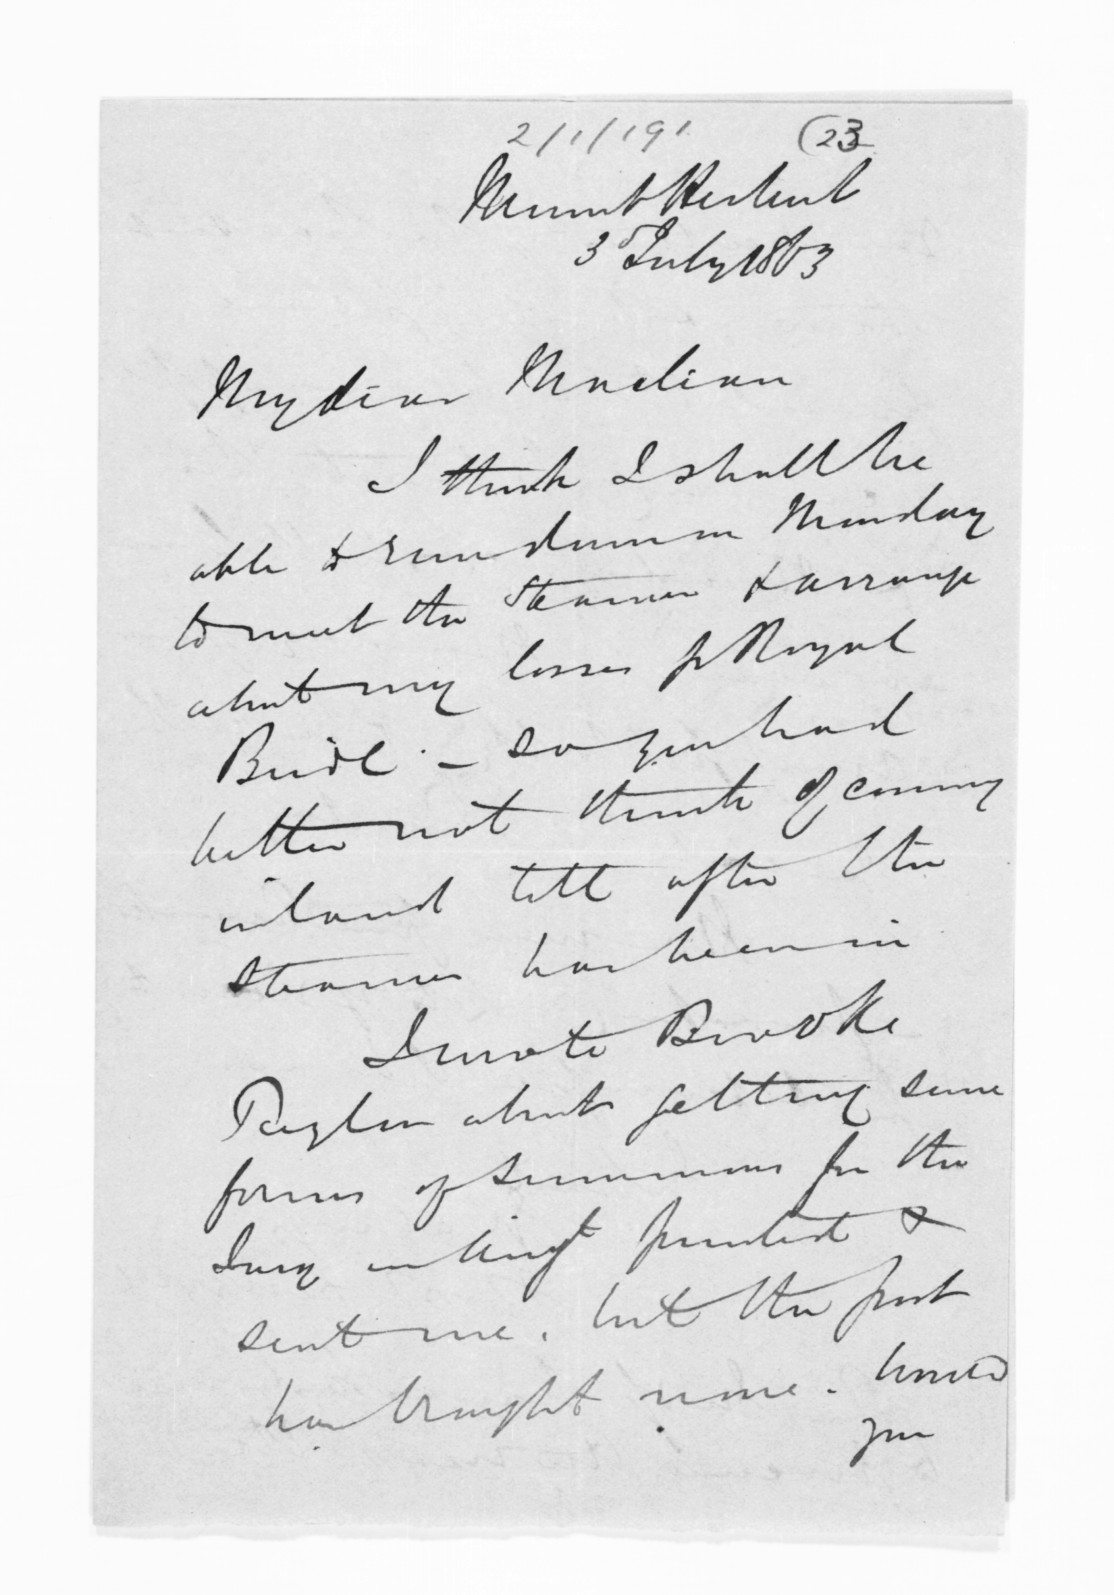 2/1/191 (23
Mount Herbert
3 July 1863
My dear Maclean
I think I shall be
able to run down on Monday
to meet the Steamer & arrange
about my losses pr Royal
Bride. – so you had
better not think of coming
inland till after the
Steamer has been in
I wrote Brooke
Taylor about getting some
forms of summons for the
Jury printed &
sent me. but the post
has brought none. Would
you